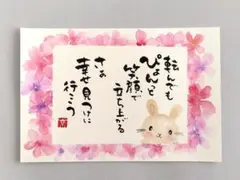 転んでも
ぴょんと
笑顔で
立ち上がる
さぁ
幸せ見つけに
行こう